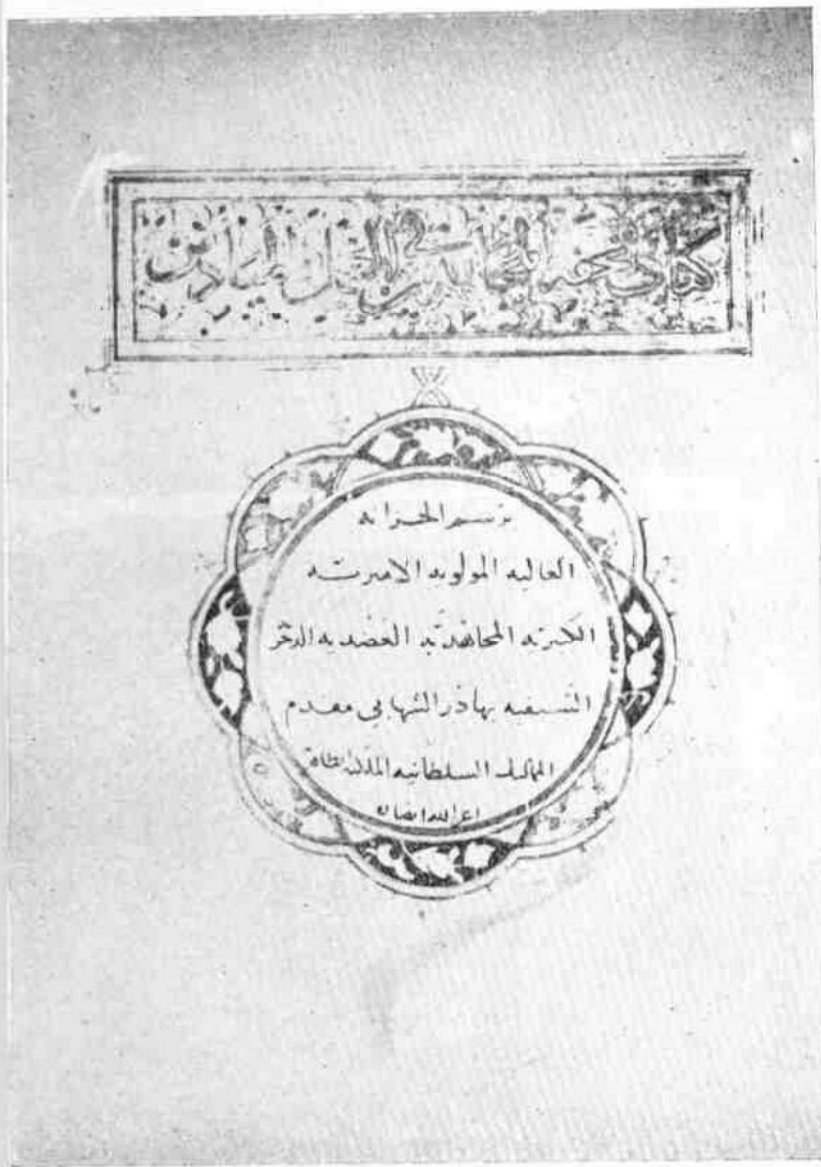 كتاب تحفة المجاهدين في العمل بالميادين
برسم الخزانه
العاليه المولويه الاميريه
الكبيريه المجاهديه العضديه الذخريه
السيفيه بهادر الشهابي مقدم
المماليك السلطانيه الملكيه الظاهريه
اعز الله انصاره